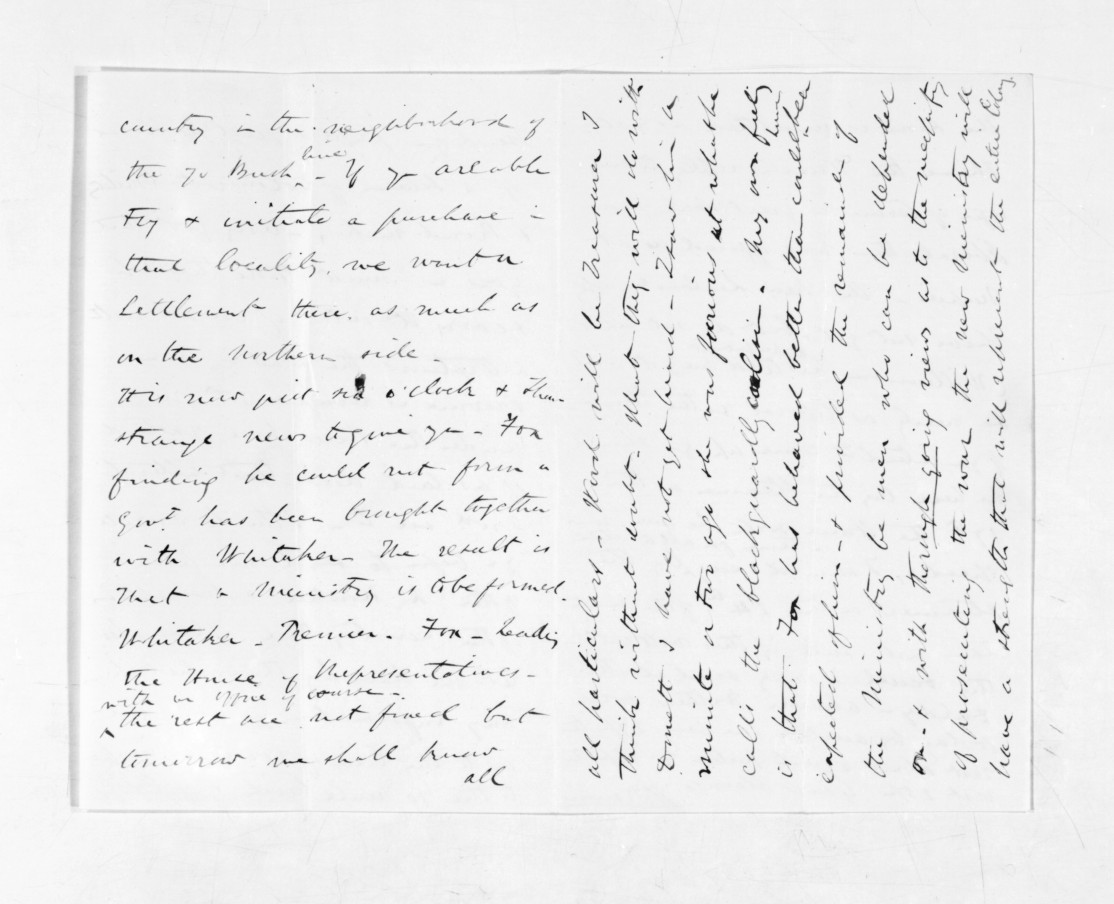 country in the neighborhood of
the 70 Bush line - If you are able
Try & initiate a purchase in
that locality, we want a
Settlement there. as much as
on the Northern side -
It is now just six o'clock &
strange news to give you - Fox
finding he could not form a
Govt has been brought together
with Whitaker - The result is
that a Ministry is to be formed.
Whitaker - Premier - Fox - Leading
the House of Representatives -
with an office of course -.
the rest are not fixed but
tomorrow we shall know
all
all particulars - Wood will be Treasurer I
think without doubt. What they will do with
Domett I have not yet heard - I saw him a
minute or two ago he was furious at what he
calls the blackguardly coalition. My own feeling
is that Fox has behaved better than could have been
expected of him - & provided the remainder of
the Ministry be men who can be depended
on - & with thorough going views as to the necessity
of prosecuting the war the new Ministry will
have a strength that will represent the entire Colony.